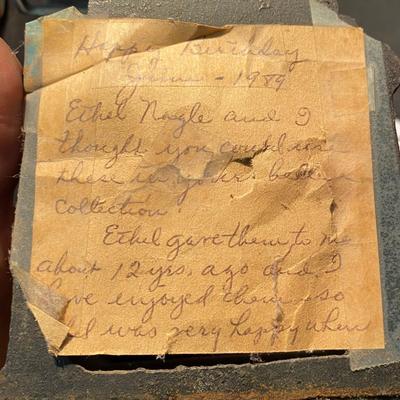 Happy Birthday
- 1989
Ethel Nagle and I
thought you could use
these in your
collection.
Ethel gave them to me
about 12 yrs. ago and I
have enjoyed them so
I was very happy when